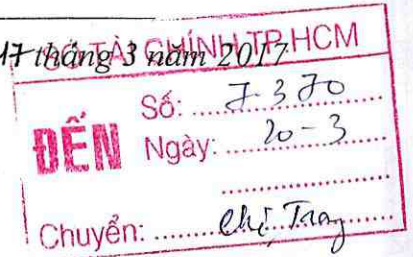 17 tháng 3 năm 2017
SỞ TÀI CHÍNH TP.HCM
ĐẾN
Số: 7370
Ngày: 20-3
Chuyển: Chị Trang